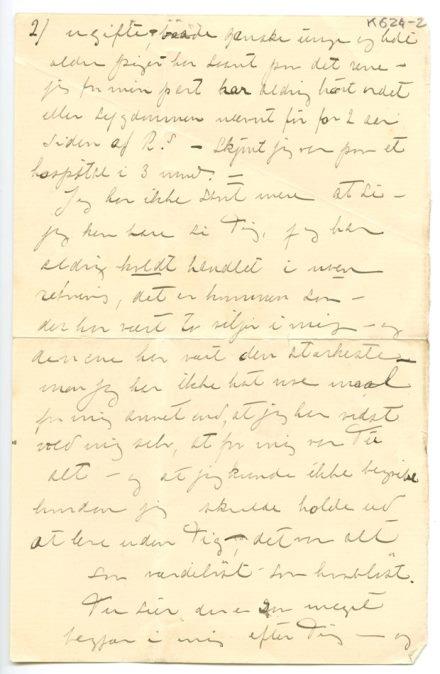 K624-2
2/ ugifte, baade ganske unge og
ældre piger har saant paa det rene –
jeg for min part har aldrig hørt ordet
eller sygdommen nævnt før for 2 aar
siden af R.s – skjønt jeg var paa et
hospital i 3 mnd. –
Jeg har ikke stort mere at si –
jeg kan bare si Dig, jeg har
aldrig koldt handlet i noen
retning, det er kommen som –
der har vært to viljer i mig – og
den ene har vært den stærkeste –
men jeg har ikke hat noe maal
for mig annet end, at jeg har vidst
ved mig selv, at for mig var Du
alt – og at jeg kunde ikke begribe
hvordan jeg skulde holde ud
at leve uden Dig –, det var alt
som værdiløst – som
Du sier, der er saa meget
begjær i mig efter Dig – og